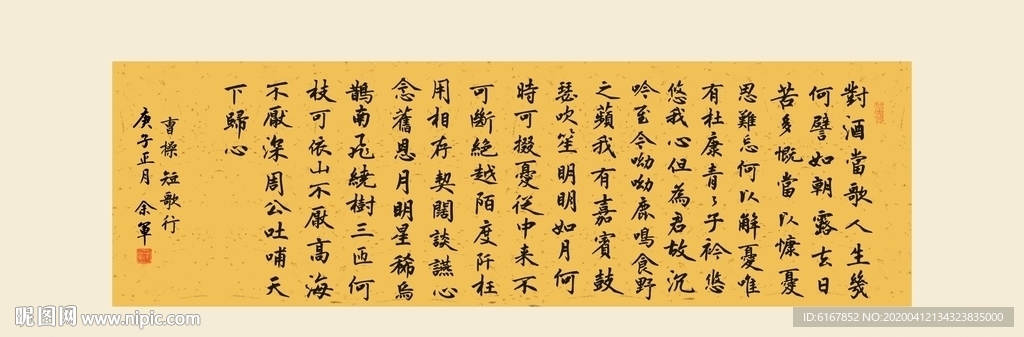 對酒當歌人生幾
何譬如朝露去日
苦多慨當以慷憂
思難忘何以解憂唯
有杜康青々子衿悠
悠我心但為君故沉
吟至今呦呦鹿鳴食野
之蘋我有嘉賓鼓
瑟吹笙明明如月何
時可掇憂從中来不
可斷絕越陌度阡枉
用相存契闊談讌心
念舊恩月明星稀烏
鵲南飛繞樹三匝何
枝可依山不厭高海
不厭深周公吐哺天
下歸心
曹操短歌行
庚子正月余軍
昵图网 www.nipic.com
ID:6167852 NO:20200412134323835000